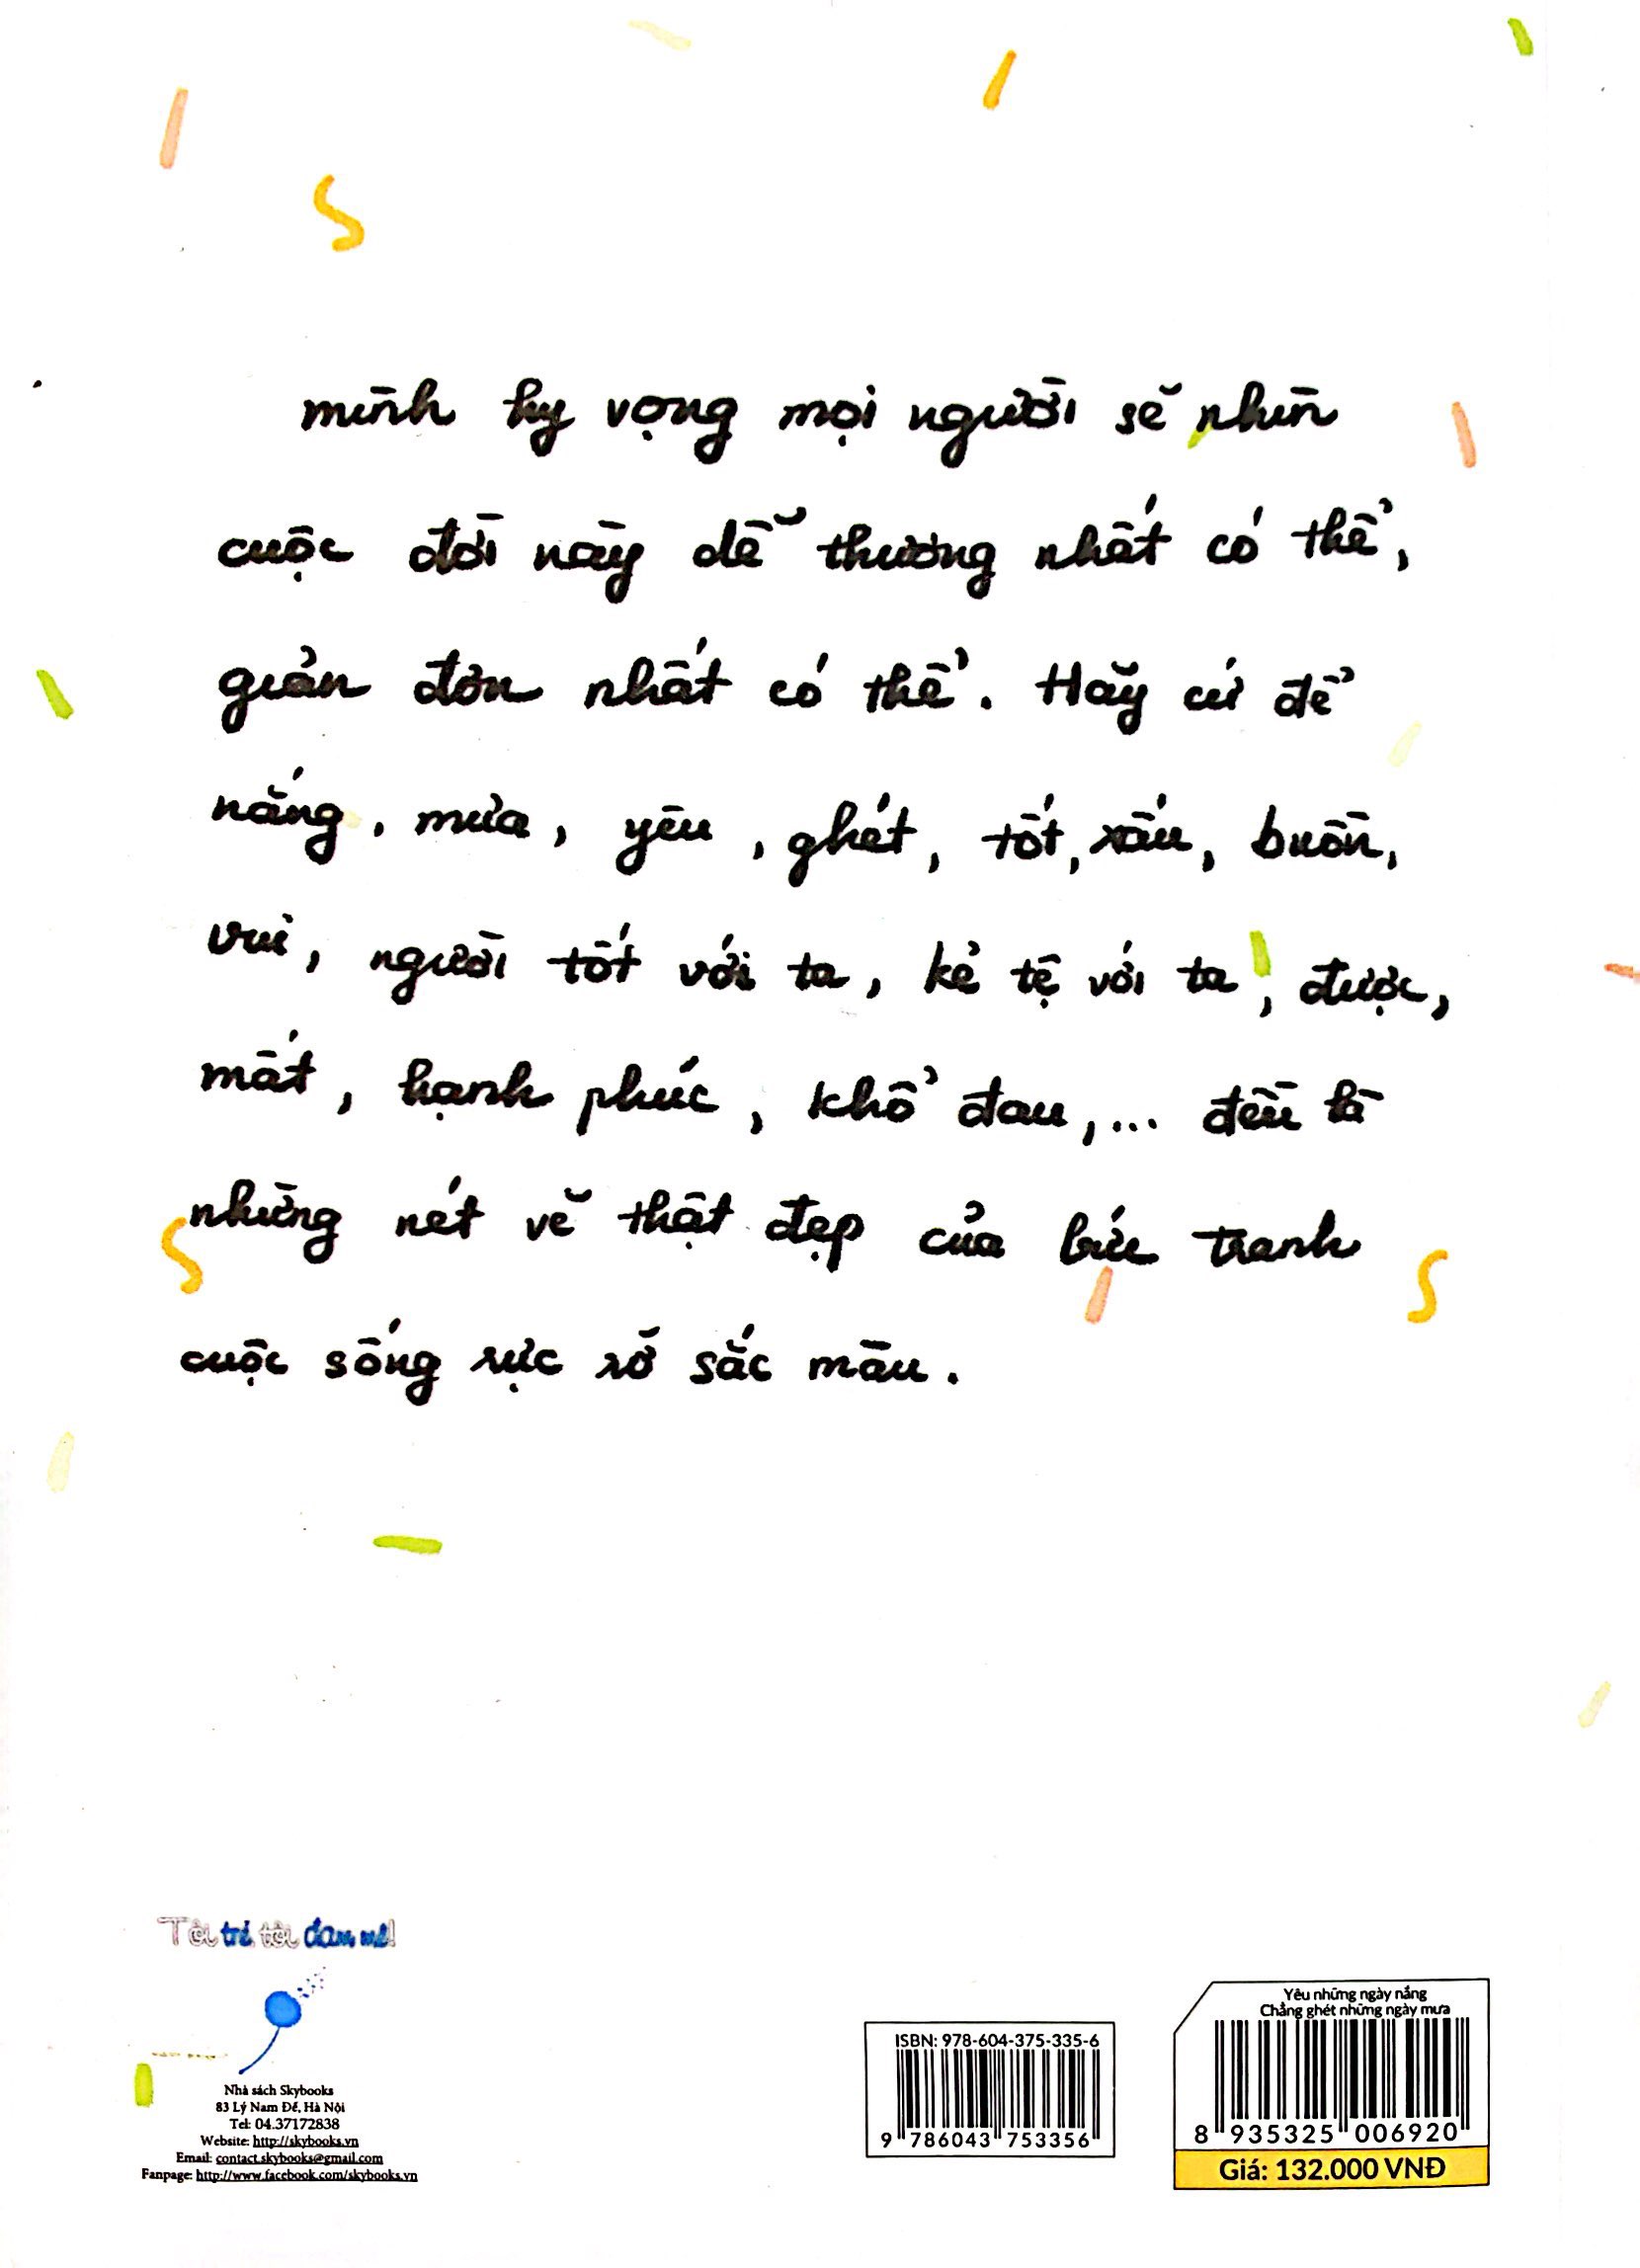 mình hy vọng mọi người sẽ nhìn
cuộc đời này dễ thương nhất có thể,
giản đơn nhất có thể. Hãy cứ để
nắng, mưa, yêu, ghét, tốt, xấu, buồn,
vui, người tốt với ta, kẻ tệ với ta, được,
mất, hạnh phúc, khổ đau,... đều là
những nét vẽ thật đẹp của bức tranh
cuộc sống rực rỡ sắc màu.
Tôi trẻ, tôi đam mê!
Nhà sách Skybooks
83 Lý Nam Đế, Hà Nội
Tel: 04.37172838
Website: http://skybooks.vn
Email: contact.skybooks@gmail.com
Fanpage: http://www.facebook.com/skybooks.vn
ISBN: 978-604-375-335-6
9 786043 753356
Yêu những ngày nắng
Chẳng ghét những ngày mưa
8 935325 006920
Giá: 132.000 VNĐ